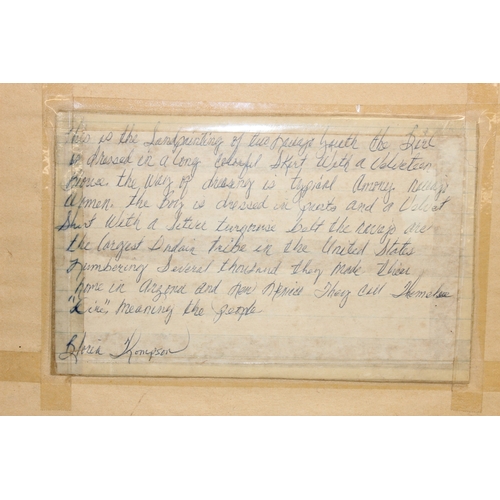 This is the Sandpainting of two Navajo youth the Girl
is dressed in a long colorful Skirt With a Velveteen
blouse. the Way of dressing is typical Among navajo
Women. the boy is dressed in pants and a Velvet
Shirt With a Silver turquoise belt the navajo are
the largest Indain tribe in the United States
Numbering Several thousand they Make their
home in Arzona and new Mexico They call Themselves
"Dine", Meaning the people
Gloria Thompson